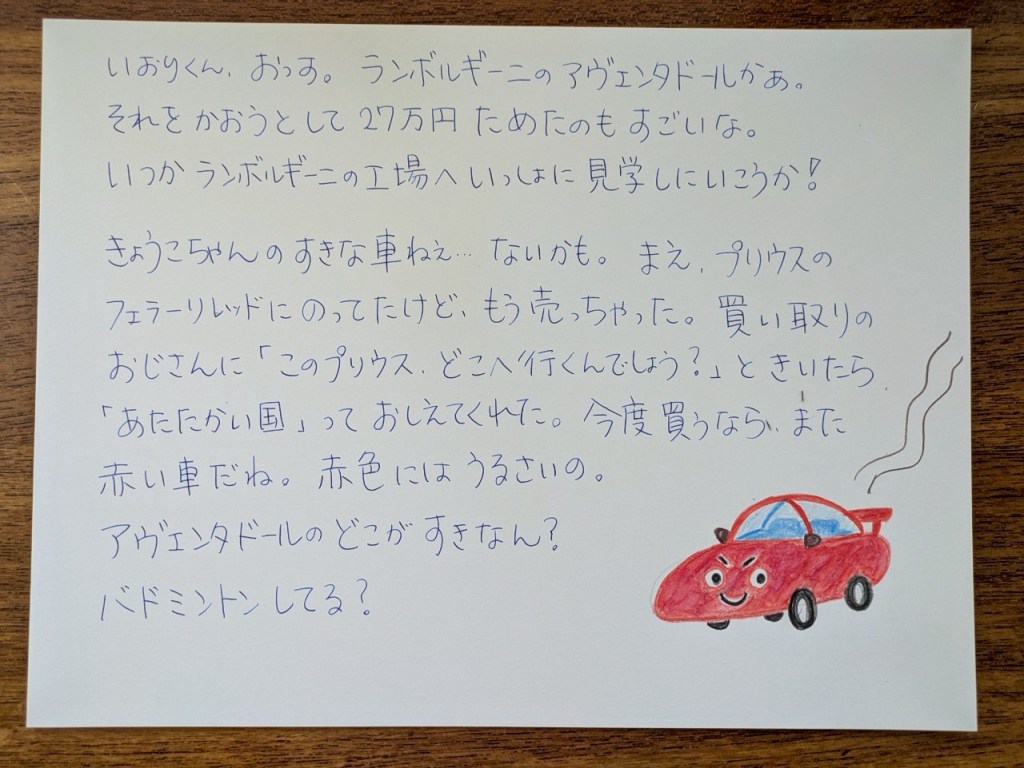 いおりくん、おっす。ランボルギーニのアヴェンタドールかぁ。
それをかおうとして27万円ためたのもすごいな。
いつかランボルギーニの工場へいっしょに見学しにいこうか!
きょうこちゃんのすきな車ねぇ…ないかも。まえ、プリウスの
フェラーリレッドにのってたけど、もう売っちゃった。買い取りの
おじさんに「このプリウス、どこへ行くんでしょう?」ときいたら、
「あたたかい国」っておしえてくれた。今度買うなら、また
赤い車だね。赤色にはうるさいの。
アヴェンタドールのどこがすきなん?
バドミントンしてる?